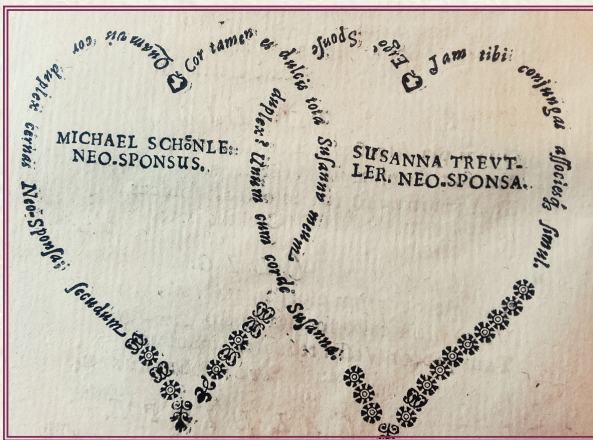 Quamvis cor duplex cernas Neô-Sponsa:; secũdum
Cor tamen es dulcis tota Susanna meum.
MICHAEL SCHÖNLE::
NEO-SPONSUS.
Ergò, Sponse, duplex? Unum cum corde Susanna.
Jam tibi conjungas associesq; simul.
SUSANNA TREVT-
LER. NEO-SPONSA.